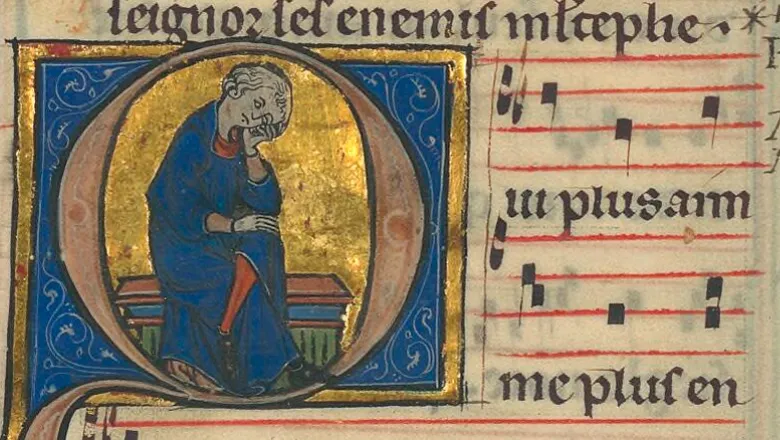 seignor ses enemis mlt cephe
Qui plus aim
me plus en